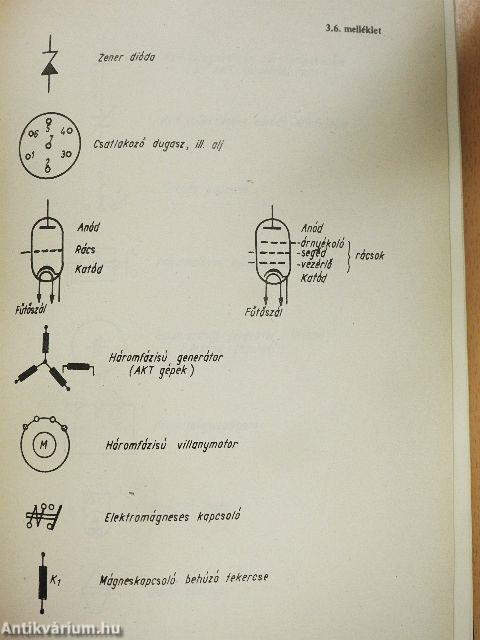 3.6. melléklet
Zener dióda
5
6 4
7
1 3
2
Csatlakozó dugasz, ill. alj
Anód
Rács
Katód
Fűtőszál
Anód
árnyékoló
segéd
vezérlő
rácsok
Katód
Fűtőszál
Háromfázisú generátor
(AKT gépek)
M
Háromfázisú villanymotor
Elektromágneses kapcsoló
K1
Mágneskapcsoló behúzó tekercse
Antikvárium.hu